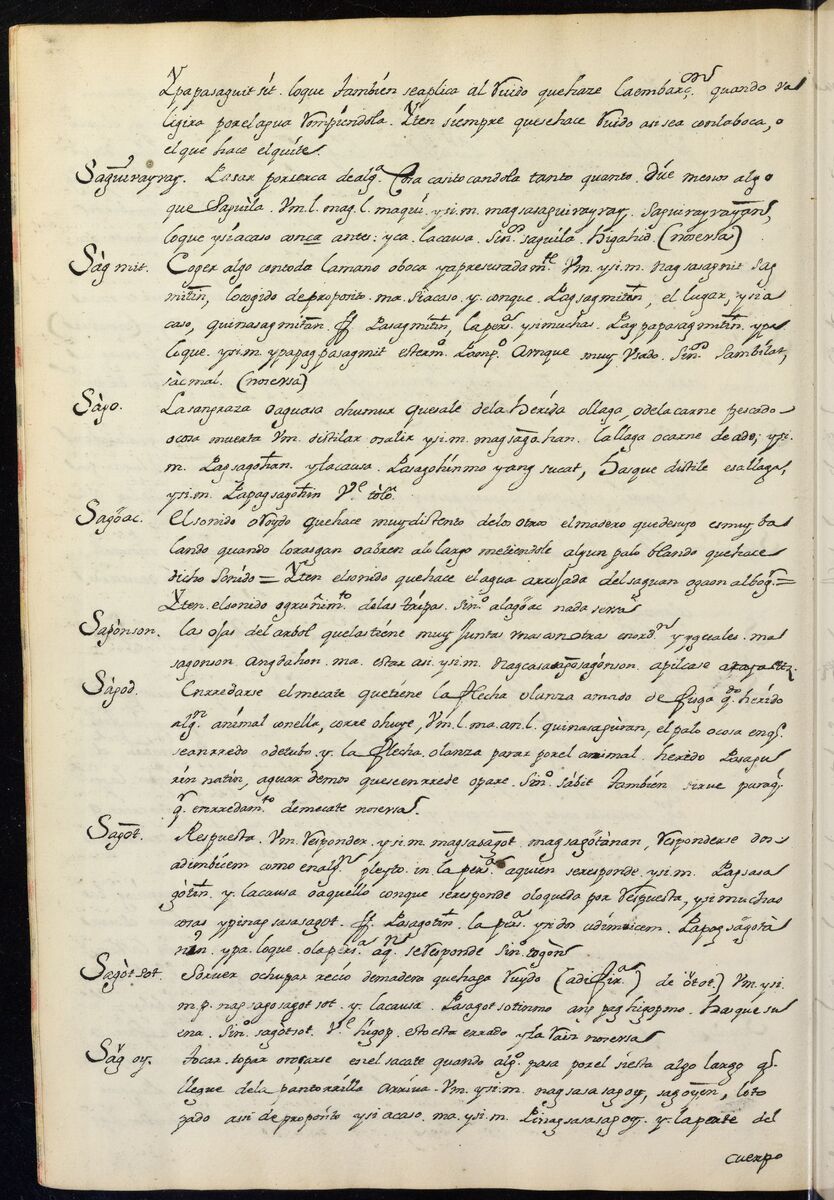 Ypapasaguitsit. loque tambien seaplica al ruido quehaze laembarçon quando va
ligira porelagua rompiendola. Yten siempre quesehace ruido asi sea conlaboca, o
el que hace elquite.
Saguirayray. Pasar porserca dealga Cosa casitocandola tanto quanto. due menos algo
que Saguila. Vm.l. mag.l. magui. ysi.m. magsasaguirayray. Saguirayrayan,
loque ysiacaso conca antes: yca. lacausa. Sino saguila. higahid. (nosersa)
Sàgmit. Coger algo contoda lamano oboca yapresuradamte. Vm. ysi.m. nagsasagmit Sag
mitun, locogido deproposito. ma. siacaso. y. conque. Pagsagmitan, el lugar, ysia
caso, quinasagmitan. ff. Pasagmitun, lapersa ysimuchas. Pagpapasagmitun. ypa.
loque. ysi.m. ypapagpasagmit estermo. Aunque muy usado. Sino Sambilat,
sàcmal. (noserva)
Sàgo. Lasangraza oaguosa ohumur quesale dela herida ollaga, odela carne pescado
ocosa muerta Vm. distilar osalir ysi.m. magsago.han. lallaga ocarne deado; ysi.
m. Pagsagohan. ylacausa. Pasagohinmo yang sucat, hasque distile esallaga,
ysi.m. Papagsagohun Ve tòlo.
Sagòac. El sonido oruydo quehace muydistento delos otros elmadero quedesuyo esmuy ba
lando quando lorasgan oabren alo largo metiendole algun palo blando quehace
dicho Sonido = Yten elsonido quehace elagua arrojada delsaguan =
Yten. elsonido ogruñimto delas tripas. Sino alagòac nada serva
Sagònson. las ojas del arbol quelastiene muy juntas masanotras yyguales. ma
sagonson angdahon. ma. estar asi. ysi.m. Nagcasagosagònson. apilcase
Sàgod. Enrredarse elmecate quetiene la flecha olunza amado de fuga qdo herido
algn animal conella, corre ohuye, Vm.l.ma.an.l. quinasagùran, el palo ocosa enqe
seanrredo odetubo. y. la flecha. olanza parar porel animal. herido Pasagu
rinnatin, aguardemos queseenrrede opare. Sino. sàbit tambien sirve paraqe
qe enrredamto demecate noserva.
Sagòt. Respuesta. Vm. responder. ysi.m. magsasagot. magsagòtanan, responderse dos
adimbicem como enalgn pleyto. in. la persa aquien seresponde. ysi.m. Pagsasa
gòtun. y. lacausa oaquello conque seresponde oloqueda por respuesta, ysimuchas
cosas ypinagsasasagot. ff. Pasagotun. la persa. ysidos adimbicem. Papagsagotà
nun. ypa. loque. ola persa aqn seresponde Sino. togòn
Sagòtsot. Sorver ochupar recio demadera quehaga ruydo (adifira) de òtot.) Vm. ysi.
m.p. nagsagosagotsot. y. lacausa. Pasagotsotinmo ang paghigopmo. hasque su
ena. Sino. sagòtsot. Ve higop. estoesta errado ylaraiz noserva
Sàgoy. tocar. topar orosarse enelsacate quando algo. pasa porel siesta algo largo qe
llegue dela pantorrilla arriva. Vm. ysi.m. nagsasasagoy, sagoyun, loto
pado asi deproposito ysiacaso. ma. ysi.m. Pinagsasasagoy. y. laparte del
cuerpo